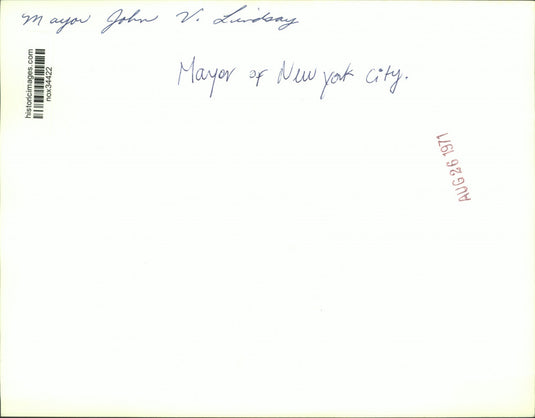 Mayor John V. Lindsay
Mayor of New york City.
historicimages.com
nox34422
AUG 26 1971